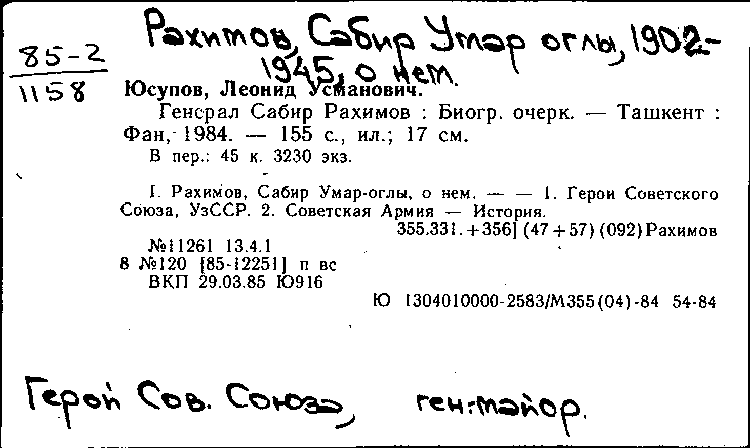 Рахимов, Сабир Умар оглы, 1902-
1945, о нем.
85-2
1158
Юсупов, Леонид Усманович.
Генерал Сабир Рахимов : Биогр. очерк. — Ташкент :
Фан, 1984. — 155 с., ил.; 17 см.
В пер.: 45 к. 3230 экз.
I. Рахимов, Сабир Умар-оглы, о нем. — — 1. Герои Советского
Союза, УзССР. 2. Советская Армия — История.
355.331.+356](47+57)(092)Рахимов
№11261 13.4.1
8 №120 [85-12251] п вс
ВКП 29.03.85 Ю916
Ю 1304010000-2583/М355(04)-84 54-84
Герой Сов. Союза, ген.-майор.